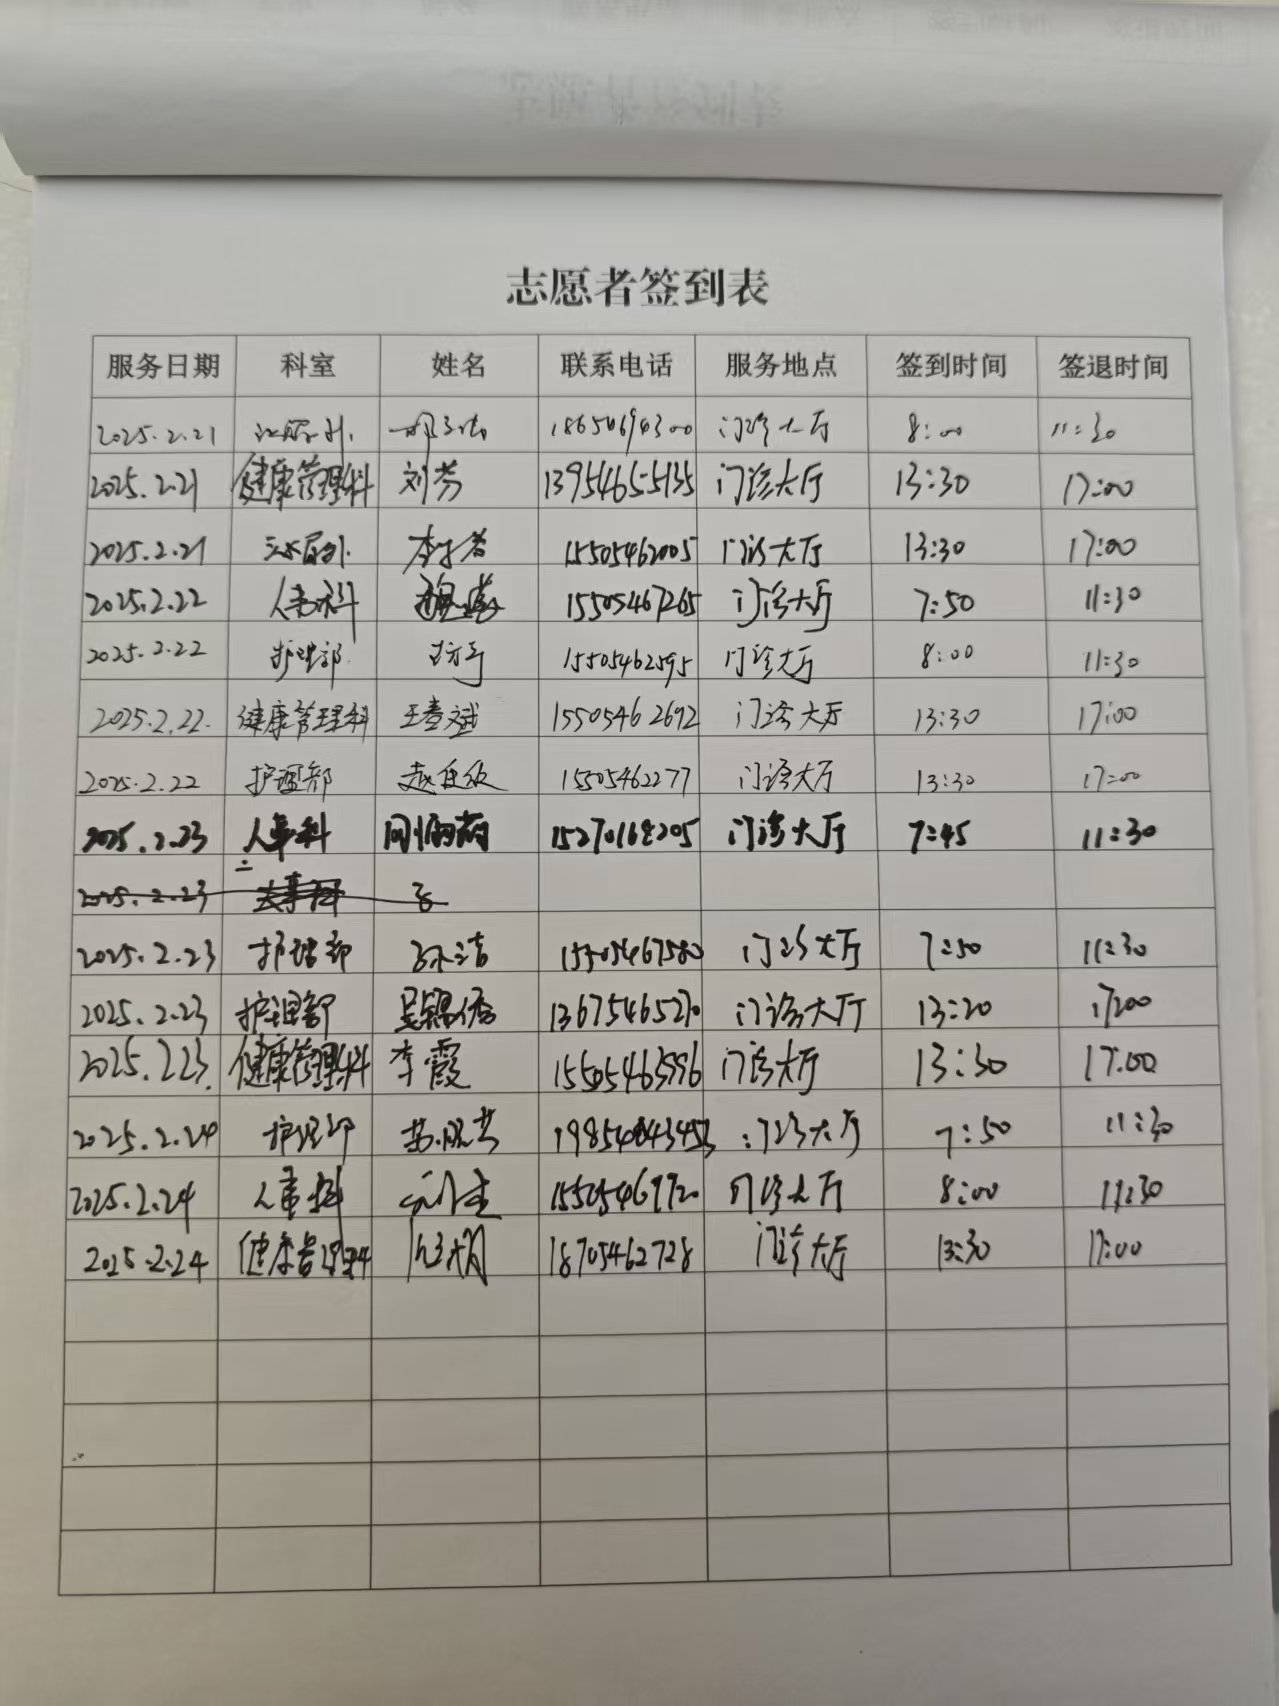 志愿者签到表
服务日期 科室 姓名 联系电话 服务地点 签到时间 签退时间
2025.2.21 泌尿外 门诊大厅 8:00 11:30
2025.2.21 健康管理科 刘芳 13954655135 门诊大厅 13:30 17:00
2025.2.21 泌尿外 15505462005 门诊大厅 13:30 17:00
2025.2.22 人事科 15505467265 门诊大厅 7:50 11:30
2025.2.22 护理部 15505462595 门诊大厅 8:00 11:30
2025.2.22. 健康管理科 15505462692 门诊大厅 13:30 17:00
2025.2.22 护理部 15505462277 门诊大厅 13:30 17:00
2025.2.23 人事科 门诊大厅 7:45 11:30
2025.2.23
2025.2.23 护理部 孙洁 15505467580 门诊大厅 7:50 11:30
2025.2.23 护理部 13675465270 门诊大厅 13:20 17:00
2025.2.23. 健康管理科 李霞 门诊大厅 13:30 17:00
2025.2.24 护理部 门诊大厅 7:50 11:30
2025.2.24 人事科 门诊大厅 8:00 11:30
2025.2.24 健康管理科 18705462728 门诊大厅 13:30 17:00